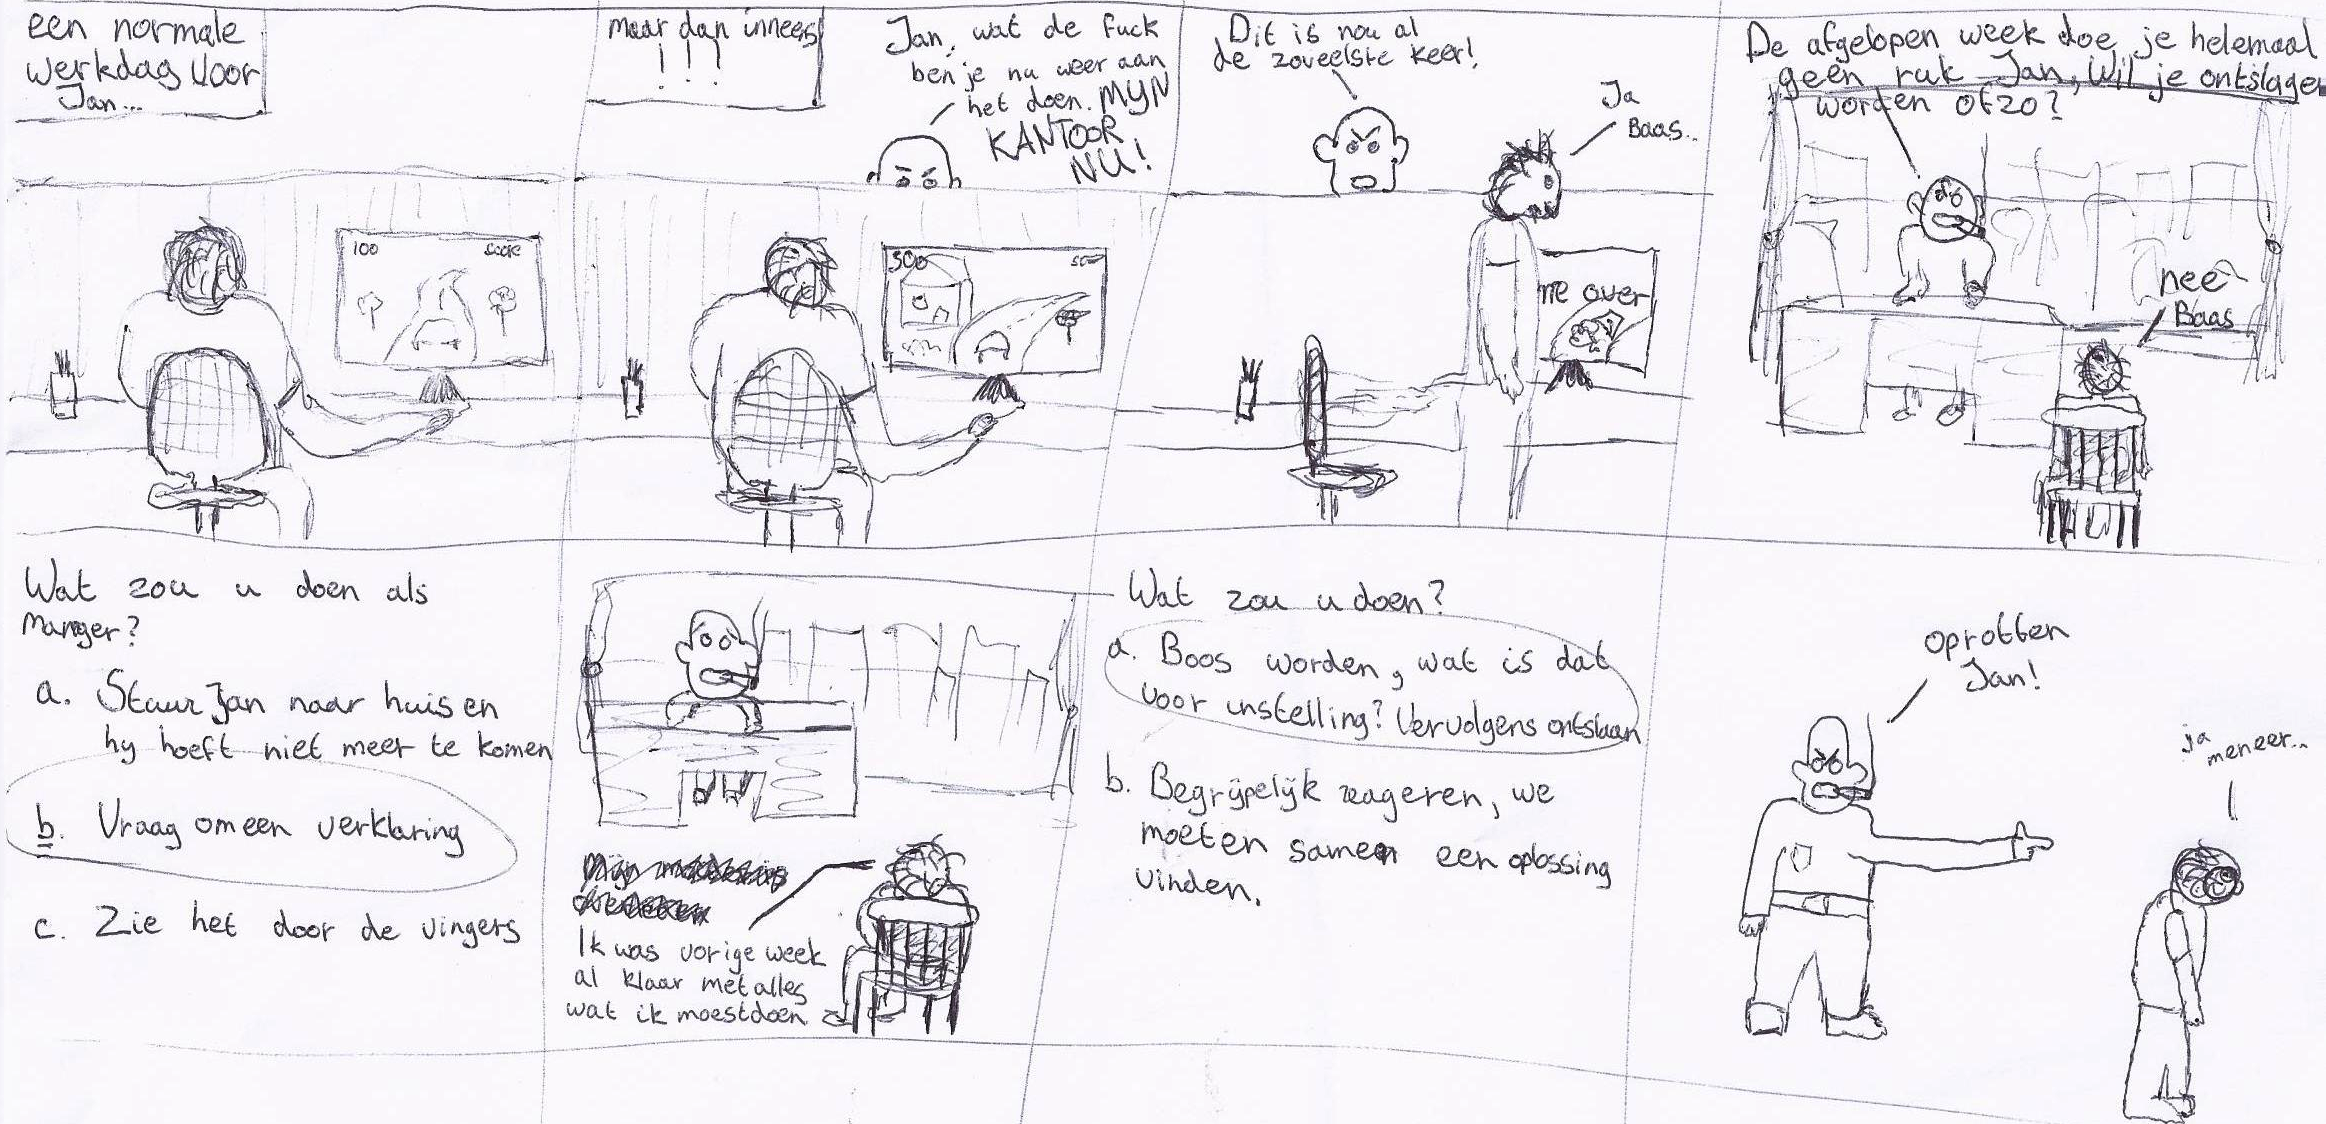 een normale
werkdag voor
Jan...
maar dan inneens
!!!
Jan, wat de fuck
ben je nu weer aan
het doen. MIJN
KANTOOR
NU!
Dit is nou al
de zoveelste keer!
Ja
Baas..
De afgelopen week doe je helemaal
geen ruk Jan, Wil je ontslagen
worden ofzo?
nee
Baas
100 score
500
me over
Wat zou u doen als
manger?
a. Stuur Jan naar huis en
hij hoeft niet meer te komen
b. Vraag om een verklaring
c. Zie het door de vingers
Ik was vorige week
al klaar met alles
wat ik moest doen
Wat zou u doen?
a. Boos worden, wat is dat
voor instelling? Vervolgens ontslaan
b. Begrijpelijk reageren, we
moeten samen een oplossing
vinden.
oprotten
Jan!
ja
meneer...